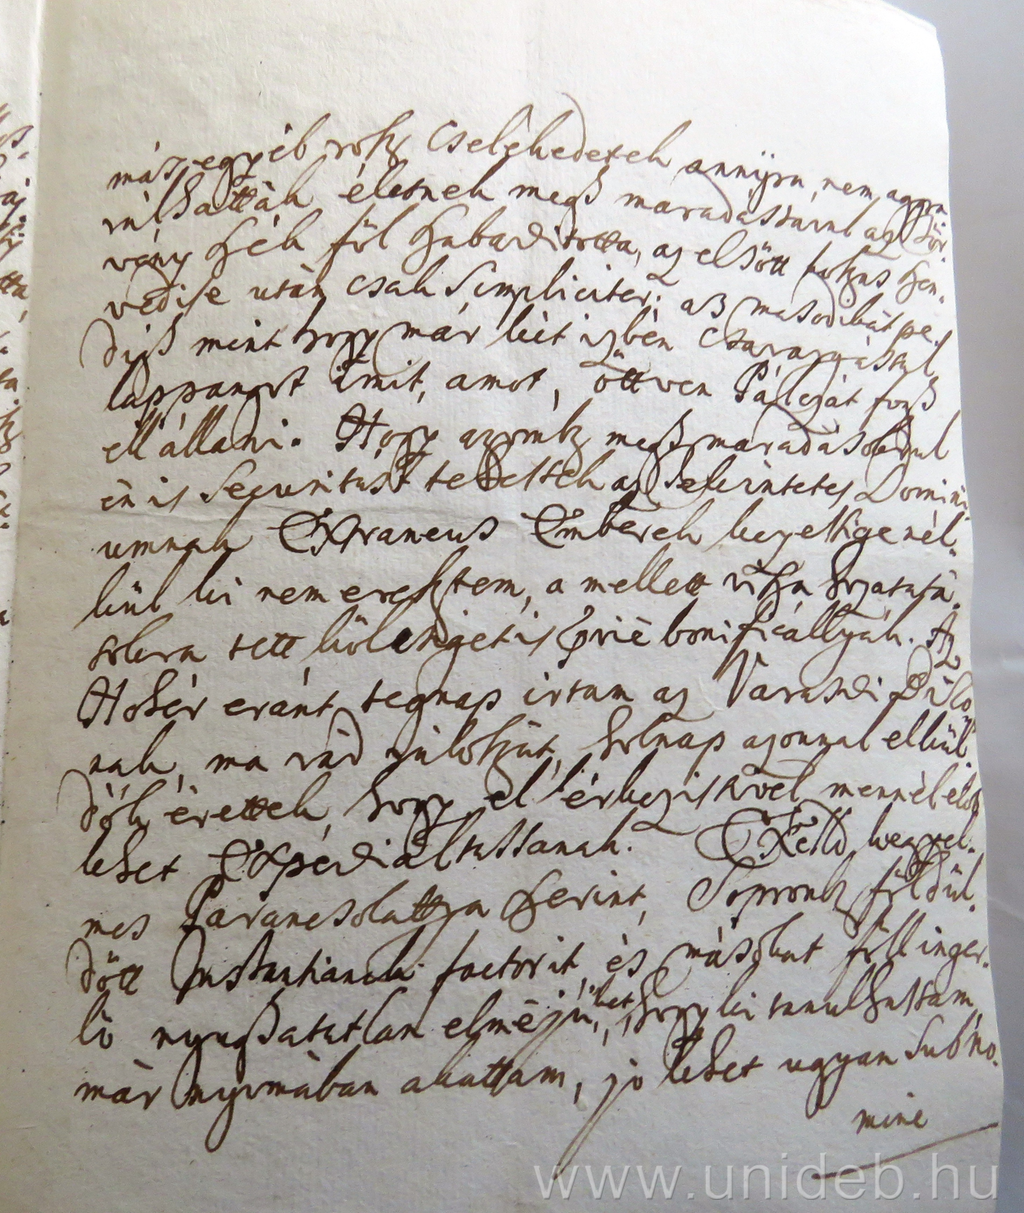 más egyéb rosz cselekedetek annijra, nem, agyon
életnek megh maradássárul az Tör-
vény szék föl szabaditotta, az elsött holnap szen-
vedise után csak Simpliciter: az masodikát pe-
digh mint hogy már két izben csavargással
lappangot imit, amot, öttven Pálczát fogh
ell állani. Hogy azomb megh maradásokrul
én is Securitást tehettek az Tekintetes Domini-
umnak Extraneus Emberek kezessige nél-
kül ki nem eresztem, a mellett visza
tett költséget is bonificállyák. Az
Hohér eránt tegnap irtam az Varasdi
nak, ma holnap azonnal elkül-
dök érettek, hogy el érkezisivel mennél elöb
lehet Expediáltassanak. kegyel-
mes Parancsolattya szerint, Sopronb föl dül-
dött Instantianak factorit, és másokat föllinger-
lö nyughatatlan elméjü, hogy ki tanulhassam,
már nyomában akattam, jo lehet ugyan Sub no-
mine
www.unideb.hu